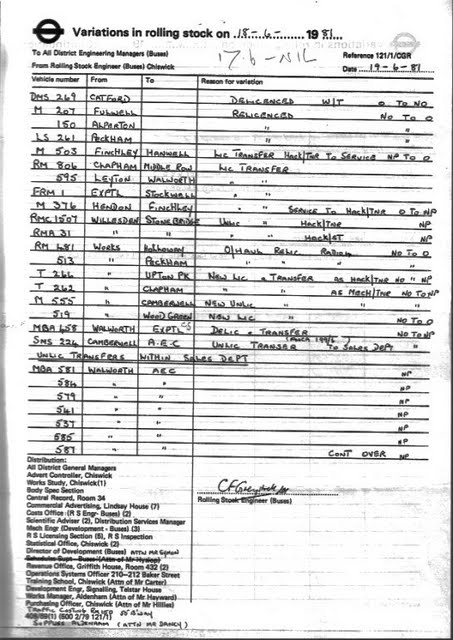 Variations in rolling stock on 18-6- 1981
17.6-NIL
To All District Engineering Managers (Buses)
Reference 121/1/CGR
From Rolling Stock Engineer (Buses) Chiswick
Date 19-6-81
Vehicle number From To Reason for variation
DMS 269 CATFORD DELICENCED W/T O TO NO
M 207 FULWELL RELICENCED NO TO O
150 ALPERTON " "
LS 261 PECKHAM " "
M 503 FINCHLEY HANWELL LIC TRANSFER HACK/TNR TO SERVICE NP TO O
RM 806 CLAPHAM MIDDLE ROW LIC TRANSFER
595 LEYTON WALWORTH " "
FRM 1 EXPTL STOCKWELL " "
M 376 HENDON FINCHLEY " " SERVICE TO HACK/TNR O TO NP
RMC 1507 WILLESDEN STONEBRIDGE UNLIC " HACK/TNR NP
RMA 31 " " " HACK/ST NP
RM 681 WORKS HOLLOWAY O/HAUL RELIC RADIAL NO TO O
513 " PECKHAM " " " "
T 266 " UPTON PK NEW LIC & TRANSFER AS HACK/TNR NO " NP
T 262 " CLAPHAM " " " AS MECH/TNR NO TO NP
M 555 " CAMBERWELL NEW UNLIC " "
519 " WOOD GREEN NEW LIC " NO TO O
MBA 458 WALWORTH EXPTL CS DELIC & TRANSFER NO TO NP
SMS 224 CAMBERWELL A.E.C UNLIC TRANSFER TO SALES DEPT "
UNLIC TRANSFERS WITHIN SALES DEPT
MBA 581 WALWORTH AEC NP
584 " " NP
579 " " NP
541 " " NP
537 " " NP
585 " " NP
587 " " CONT OVER NP
Distribution:
All District General Managers
Advert Controller, Chiswick
Works Study, Chiswick(1)
Body Spec Section
Central Record, Room 34
Rolling Stock Engineer (Buses)
Commercial Advertising, Lindsay House (7)
Costs Office (R S Engr- Buses) (2)
Scientific Adviser (2), Distribution Services Manager
Mech Engr (Development - Buses) (3)
R S Licensing Section (5), R S Inspection
Statistical Office, Chiswick (2)
Director of Development (Buses)
Schedules Supt - Buses (Attn of Mr Hyslop)
Revenue Office, Griffith House, Room 432 (2)
Operations Systems Officer 210-212 Baker Street
Training School, Chiswick (Attn of Mr Carter)
Development Engr, Signalling, Telstar House
Works Manager, Aldenham (Attn of Mr Hayward)
Purchasing Officer, Chiswick (Attn of Mr Hillies)
TRAFFIC COSTING
(500 2/79 121/1)
SUPPLIES ALDENHAM